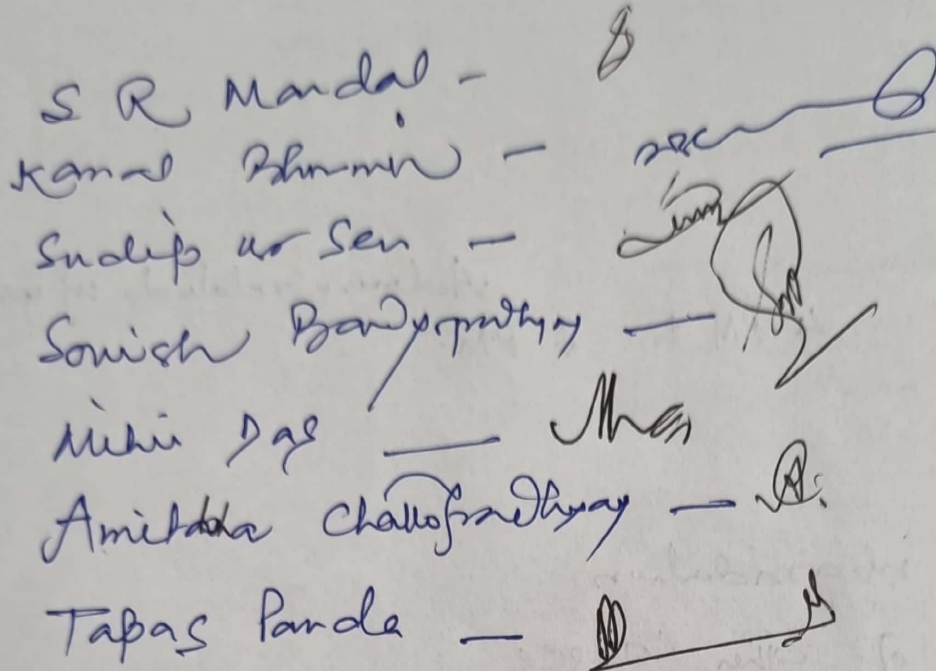 S R Mandal -
Kamal Bhunia -
Sudip kr Sen -
Sonish Bandyopadhyay -
Mihir Das -
Amitabha Chattopadhyay -
Tapas Panda -